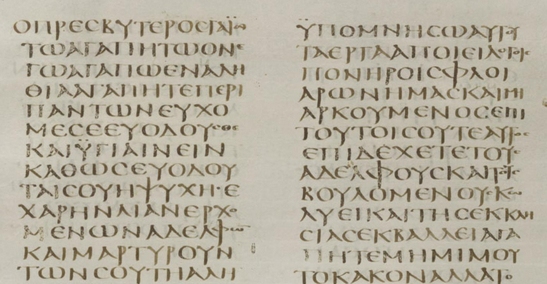 ΟΠΡΕCΒΥΤΕΡΟCΓΑΪΩ
ΤΩΑΓΑΠΗΤΩΟΝ
ΓΩΑΓΑΠΩΕΝΑΛΗ
ΘΙΑΑΓΑΠΗΤΕΠΕΡΙ
ΠΑΝΤΩΝΕΥΧΟ
ΜΕCΕΕΥΟΔΟΥCΘΕ
ΚΑΙΫΓΙΑΙΝΕΙΝ
ΚΑΘΩCΕΥΟΔΟΥ
ΤΑΙCΟΥΗΨΥΧΗΕ
ΧΑΡΗΝΛΙΑΝΕΡΧΟ
ΜΕΝΩΝΑΔΕΛΦΩ
ΚΑΙΜΑΡΤΥΡΟΥΝ
ΤΩΝCΟΥΤΗΑΛΗ
ΫΠΟΜΝΗCΩΑΥΤΟΥ
ΤΑΕΡΓΑΑΠΟΙΕΙΛΟΓΟΙC
ΠΟΝΗΡΟΙCΦΛΟΙ
ΑΡΩΝΗΜΑCΚΑΙΜΗ
ΑΡΚΟΥΜΕΝΟCΕΠΙ
ΤΟΥΤΟΙCΟΥΤΕΑΥΤΟC
ΕΠΙΔΕΧΕΤΕΤΟΥC
ΑΔΕΛΦΟΥCΚΑΙΤΟΥC
ΒΟΥΛΟΜΕΝΟΥCΚΩ
ΛΥΕΙΚΑΙΤΗCΕΚΚΛΗ
CΙΑCΕΚΒΑΛΛΕΙΑΓΑ
ΠΗΤΕΜΗΜΙΜΟΥ
ΤΟΚΑΚΟΝΑΛΛΑΤΟ